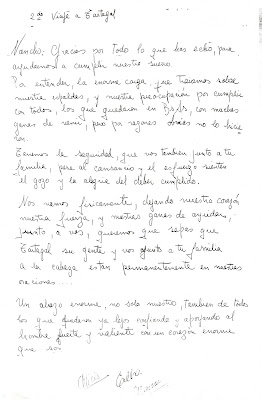 2do Viaje a Tartagal
Nancho: Gracias por todo lo que has echo, para
ayudarnos a cumplir nuestro sueño.
Por entender, la enorme carga que traíamos sobre
nuestra espaldas, y nuestra preocupación por cumplir
con todos los que quedaron en Bs As, con muchas
ganas de venir, pero por razones obvias no lo hicie
ron.
Tenemos la seguridad, que vos tambien junto a tu
familia, pese al cansancio y el esfuerzo sienten
el gozo y la alegria del deber cumplido.
Nos vamos fisicamente, dejando nuestro corazón
nuestra fuerza, y nuestras ganas de ayudar,
junto a vos, queremos que sepas que
Tartagal su gente y vos junto a tu familia
a la cabeza estan permanentemente en nuestras
oraciones....
Un abrazo enorme, no solo nuestro, tambien de todos
los que quedaron ya lejos confiando y apoyando al
hombre fuerte y valiente con un corazón enorme
que sos